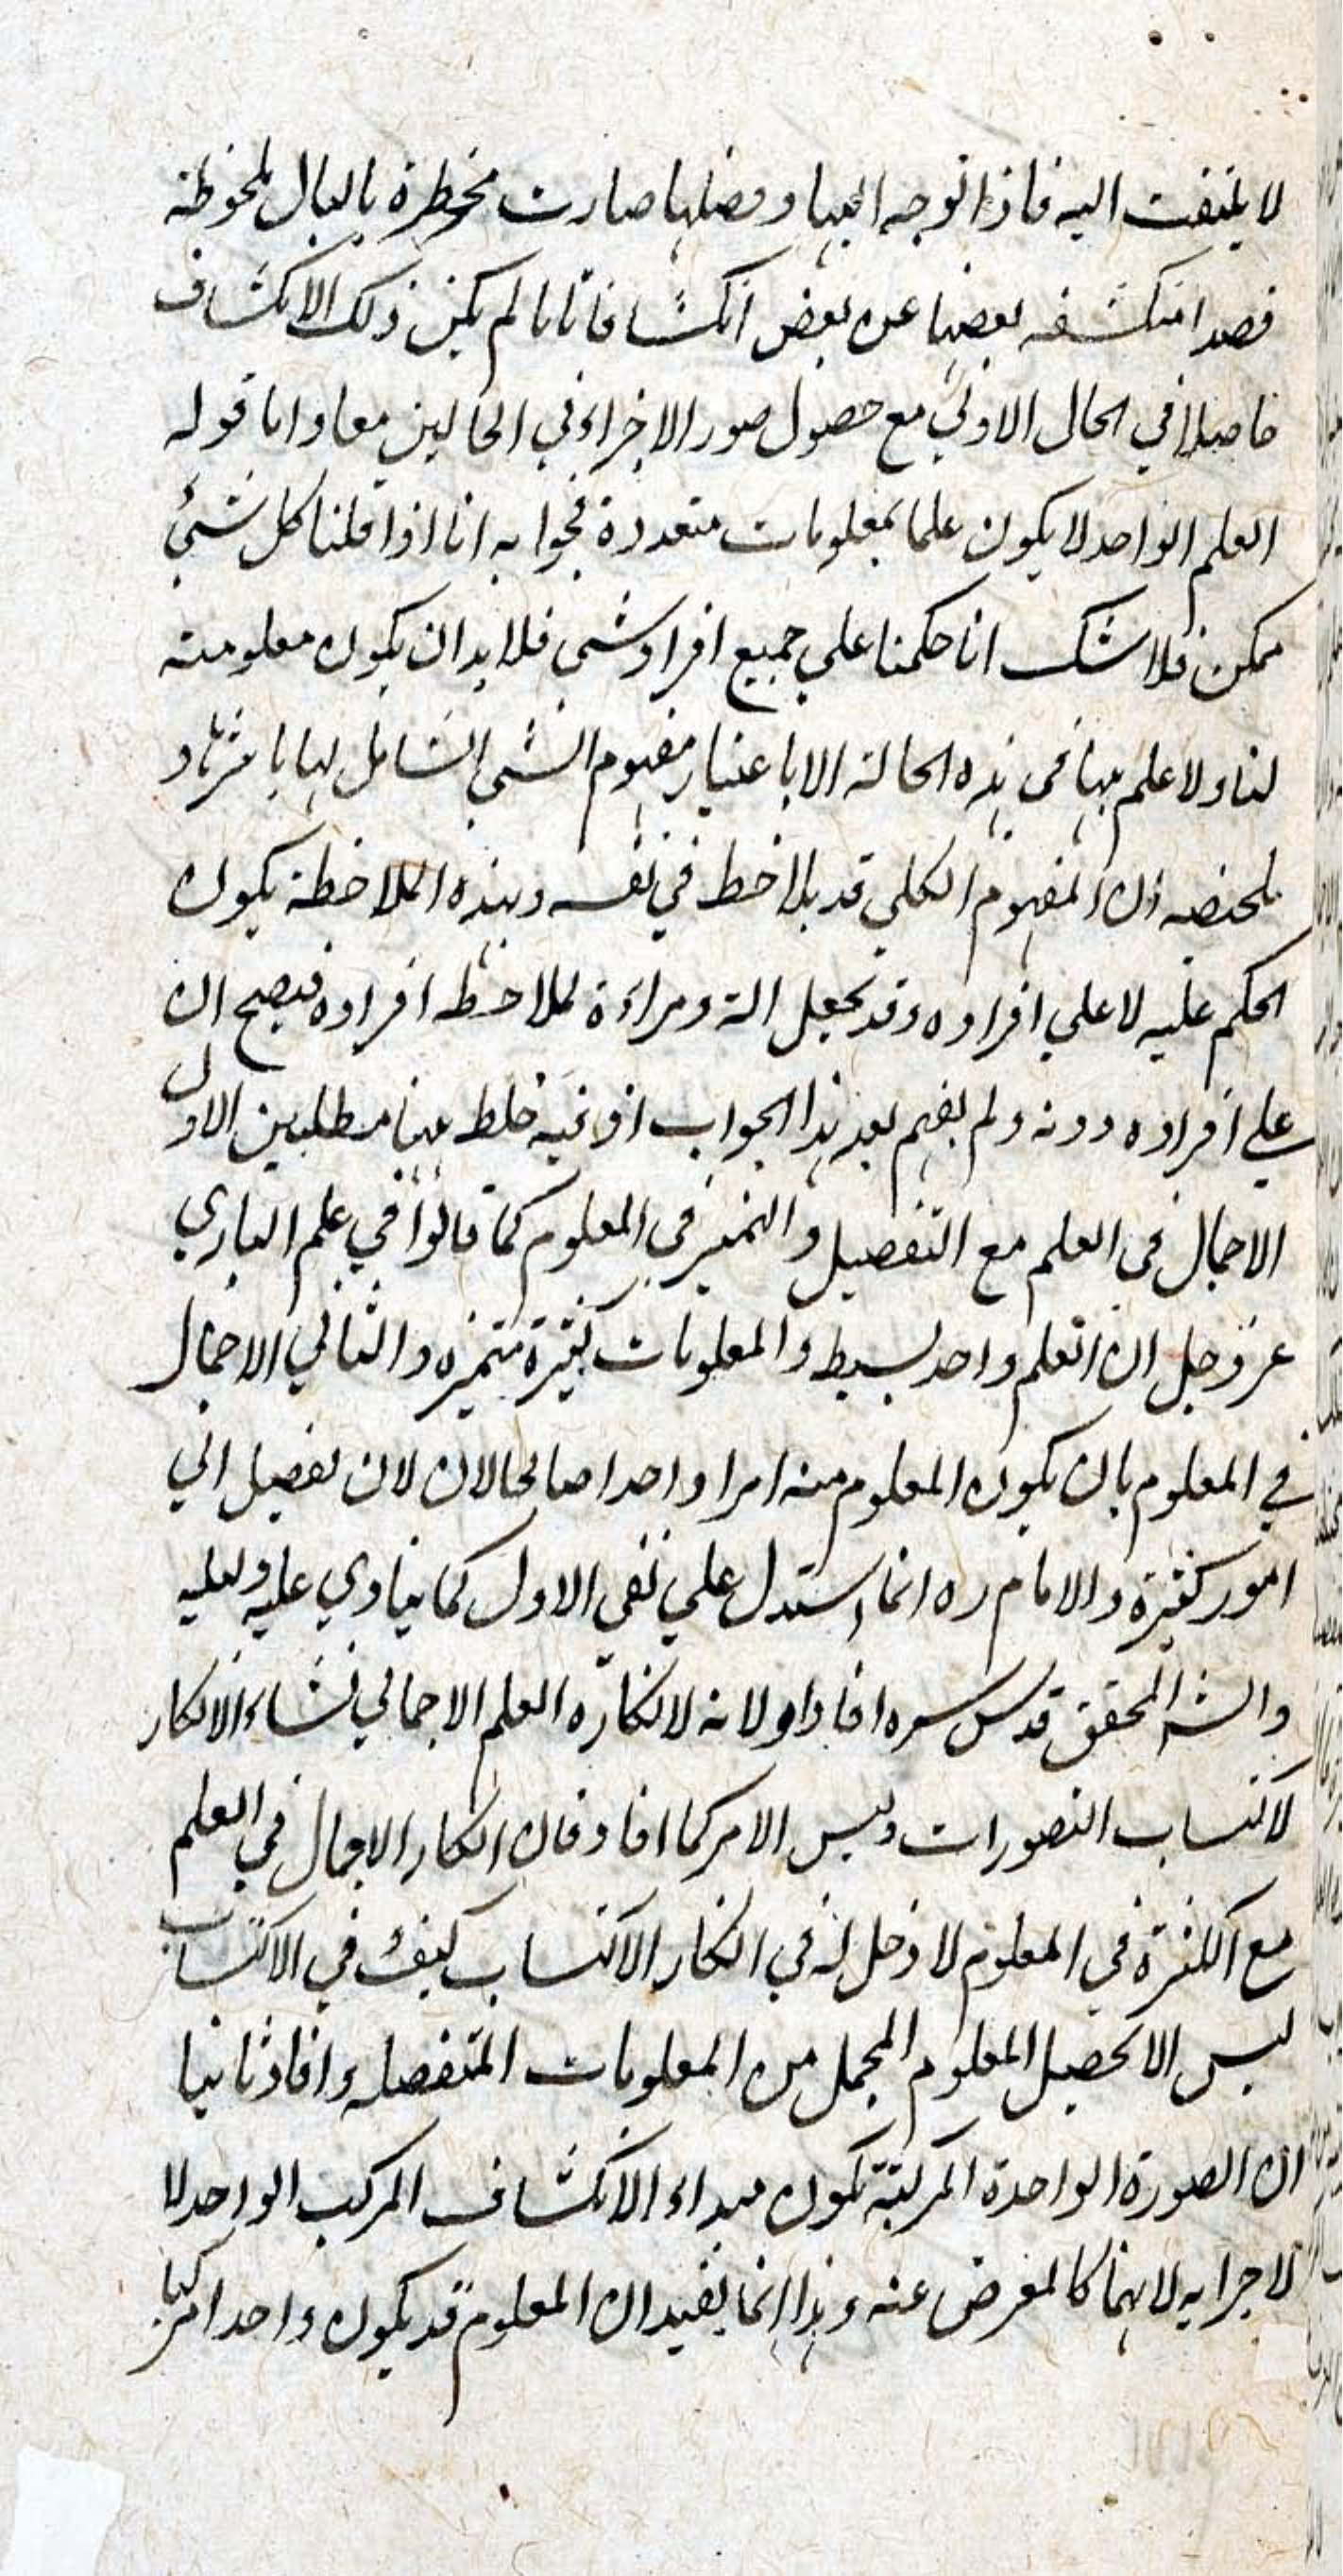 لا يلتفت اليه فاذا توجه اليها و فصلها صارت مخطرة بالبال ملحوظة
قصدا منكشفة بعضها عن بعض انكشافا تاما لم يكن ذلك الانكشاف
حاصلا في الحال الاولي مع حصول صور الاجزاء في الحالين معا و اما قوله
العلم الواحد لا يكون علما بمعلومات متعددة فجوابه انا اذا قلنا كل شئ
ممكن فلا شك انا حكمنا علي جميع افراد شي فلا بد ان يكون معلومته
لنا و لا علم بها في هذه الحالة الا باعتبار مفهوم الشي الشامل لها باسرها و
ملخصه ان المفهوم الكلي قد يلاحظ في نفسه و بهذه الملاحظة يكون
الحكم عليه لا علي افراده و قد يجعل الة و مراءة لملاحظة افراده فيصح ان
علي افراده دونه و لم يفهم بعد هذا الجواب اذ فيه خلط ههنا مطلبين الاول
الاجمال في العلم مع التفصيل و التميز في المعلوم كما قالوا في علم الباري
عز و جل ان العلم واحد بسيط و المعلومات كثيرة متميزه و الثاني الاجمال
في المعلوم بان يكون المعلوم منه امرا واحدا صالحا لان لان تفصيل الي
امور كثيرة و الامام ره انما استدل علي نفي الاول كما ينادي عليه دليله
و الشه المحقق قدس سره افاد اولا انه لانكاره العلم الاجمالي نشاء الانكار
لاكتساب التصورات و ليس الامر كما افاد فان انكار الاجمال في العلم
مع الكثرة في المعلوم لا دخل له في انكار الاكتساب كيف و في الاكتساب
ليس الا تحصيل المعلوم المجمل من المعلومات المتفصله و افاد ثانيا
ان الصورة الواحدة المركبة تكون مبداء الانكشاف المركب الواحد لا
لاجرايه لانها كالمعرض عنه و هذا انما يفيد ان المعلوم قد يكون واحدا مركبا